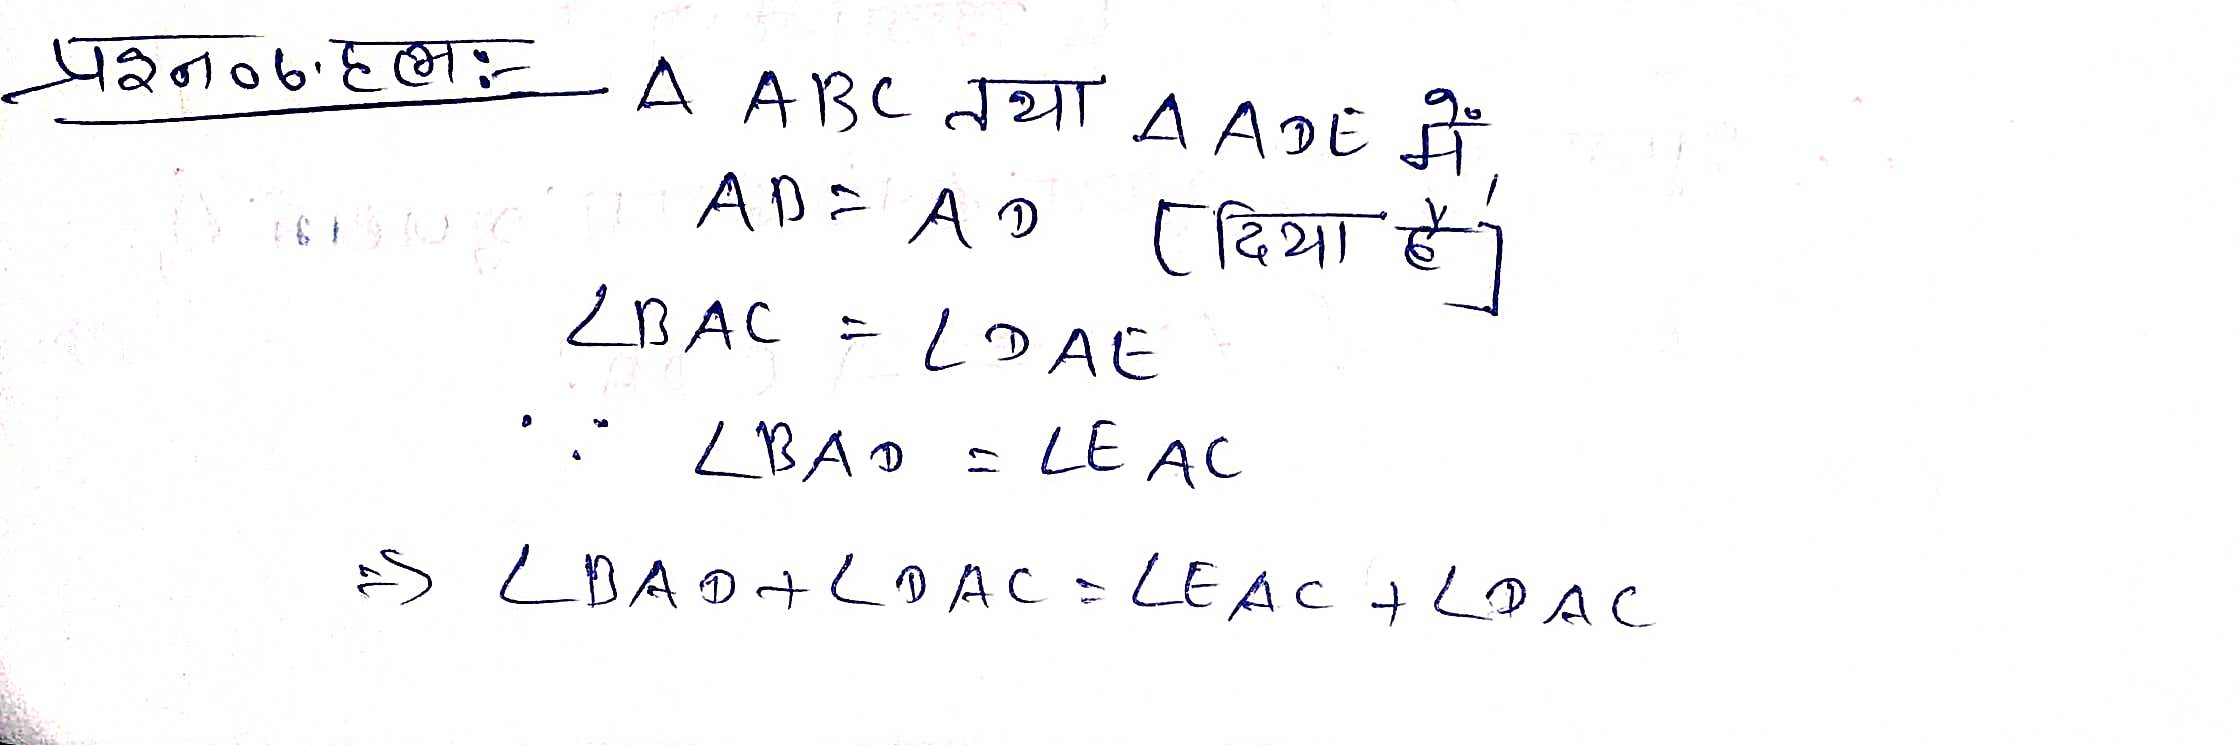 प्रश्न 06. हल :- Δ ABC तथा Δ ADE में,
AB = AD [दिया है]
∠BAC = ∠DAE
∵ ∠BAD = ∠EAC
⇒ ∠BAD + ∠DAC = ∠EAC + ∠DAC